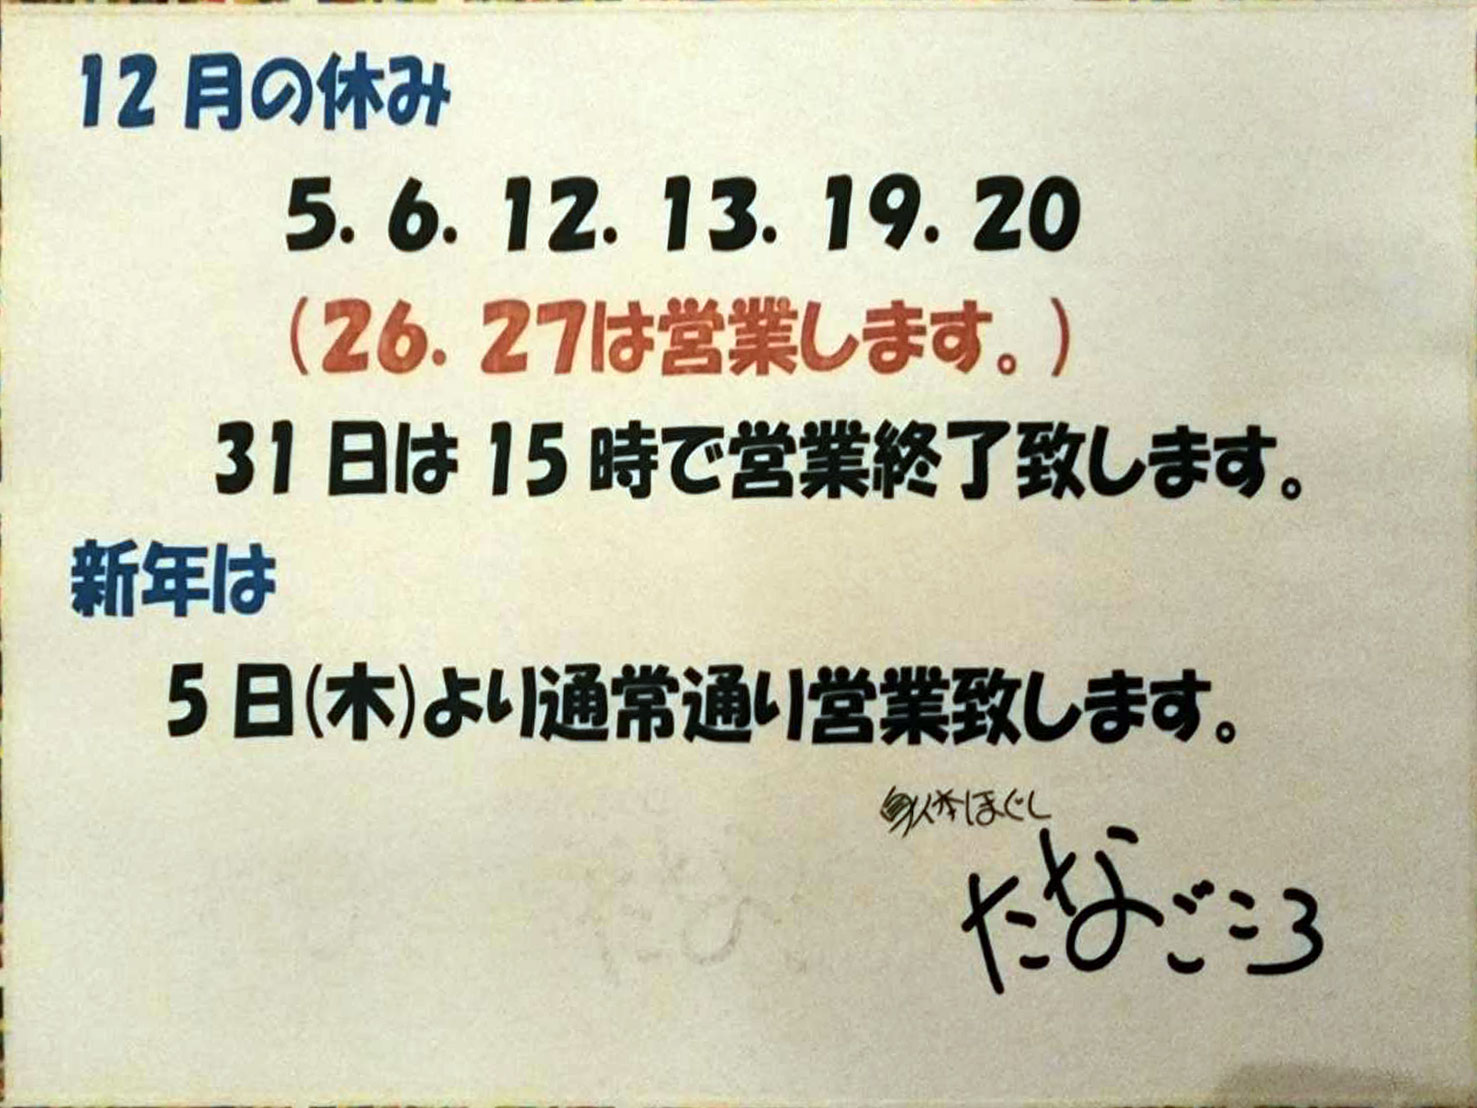 12月の休み
5. 6. 12. 13. 19. 20
(26. 27は営業します。)
31日は15時で営業終了致します。
新年は
5日(木)より通常通り営業致します。
ほぐし
たなごころ